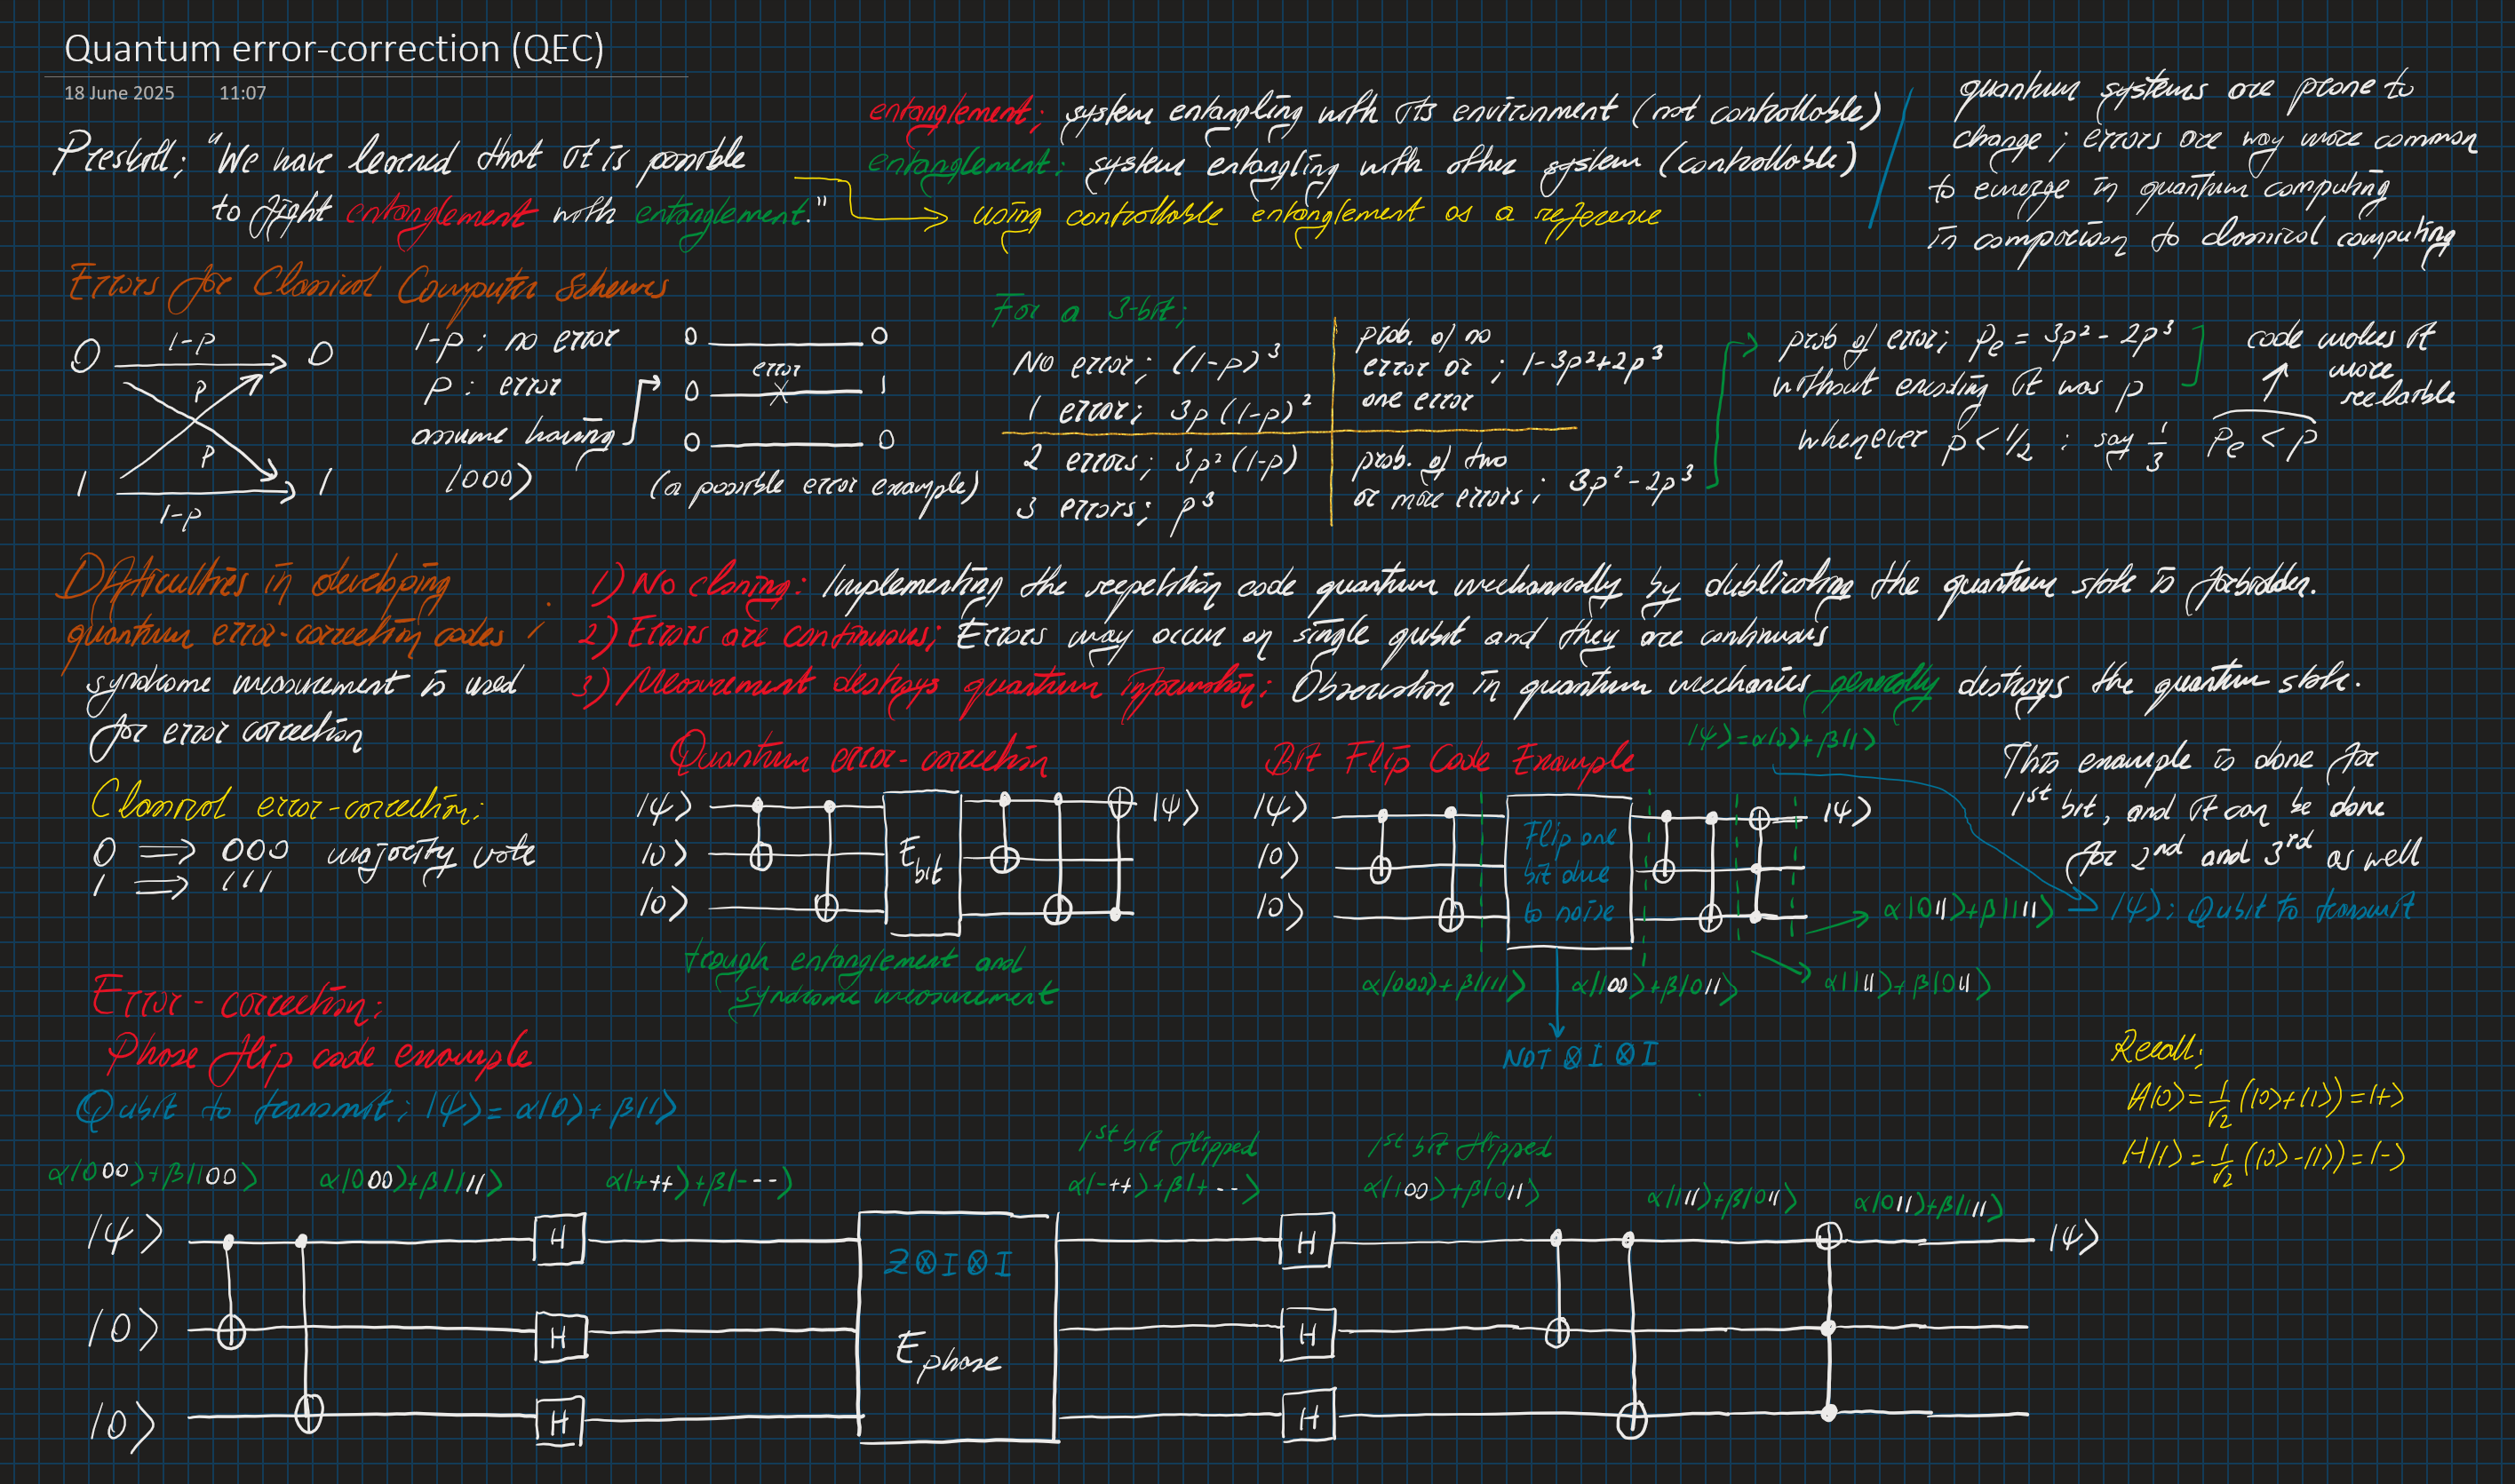 Quantum error-correction (QEC)
18 June 2025 11:07
Preskill; "We have learned that it is possible
to fight entanglement with entanglement."
entanglement; system entangling with its environment (not controllable)
entanglement: system entangling with other system (controllable)
using controllable entanglement as a reference
quantum systems are prone to
change; errors are way more common
to emerge in quantum computing
in comparison to classical computing
Errors for Classical Computer Schemes
0 1-p 0
p
p
1 1-p 1
1-p : no error
p : error
assume having
|000⟩
0 0
error
0 1
0 0
(a possible error example)
For a 3-bit;
No error; (1-p)³
1 error; 3p(1-p)²
2 errors; 3p²(1-p)
3 errors; p³
prob. of no
error or ; 1-3p²+2p³
one error
prob. of two
or more errors; 3p²-2p³
prob of error; Pe = 3p²-2p³
without encoding it was p
whenever p < 1/2 : say 1/3 Pe < p
code makes it
more
Difficulties in developing
quantum error-correction codes :
syndrome measurement is used
for error correction
1) No cloning: Implementing the repetition code quantum mechanically by dublicating the quantum state is forbidden.
2) Errors are continuous; Errors may occur on single qubit and they are continuous
3) Measurement destroys quantum information: Observation in quantum mechanics generally destroys the quantum state.
Classical error-correction:
0 ⟹ 000 majority vote
1 ⟹ 111
Quantum error-correction
|ψ⟩ |ψ⟩
|0⟩ E bit
|0⟩
trough entanglement and
syndrome measurement
Bit Flip Code Example
|ψ⟩=α|0⟩+β|1⟩
|ψ⟩ |ψ⟩
|0⟩
|0⟩
Flip one
bit due
to noise
α|000⟩+β|111⟩ α|100⟩+β|011⟩ α|111⟩+β|011⟩
α|011⟩+β|111⟩
NOT⊗I⊗I
This example is done for
1st bit, and it can be done
for 2nd and 3rd as well
|ψ⟩: Qubit to transmit
Error-correction:
Phase flip code example
Qubit to transmit; |ψ⟩=α|0⟩+β|1⟩
Recall:
H|0⟩=1/√2 (|0⟩+|1⟩)=|+⟩
H|1⟩=1/√2 (|0⟩-|1⟩)=|-⟩
α|000⟩+β|100⟩ α|000⟩+β|111⟩ α|+++⟩+β|---⟩
1st bit flipped
α|-++⟩+β|+--⟩
1st bit flipped
α|100⟩+β|011⟩
α|111⟩+β|011⟩ α|011⟩+β|111⟩
|ψ⟩ H Z⊗I⊗I H |ψ⟩
|0⟩ H E phase H
|0⟩ H H